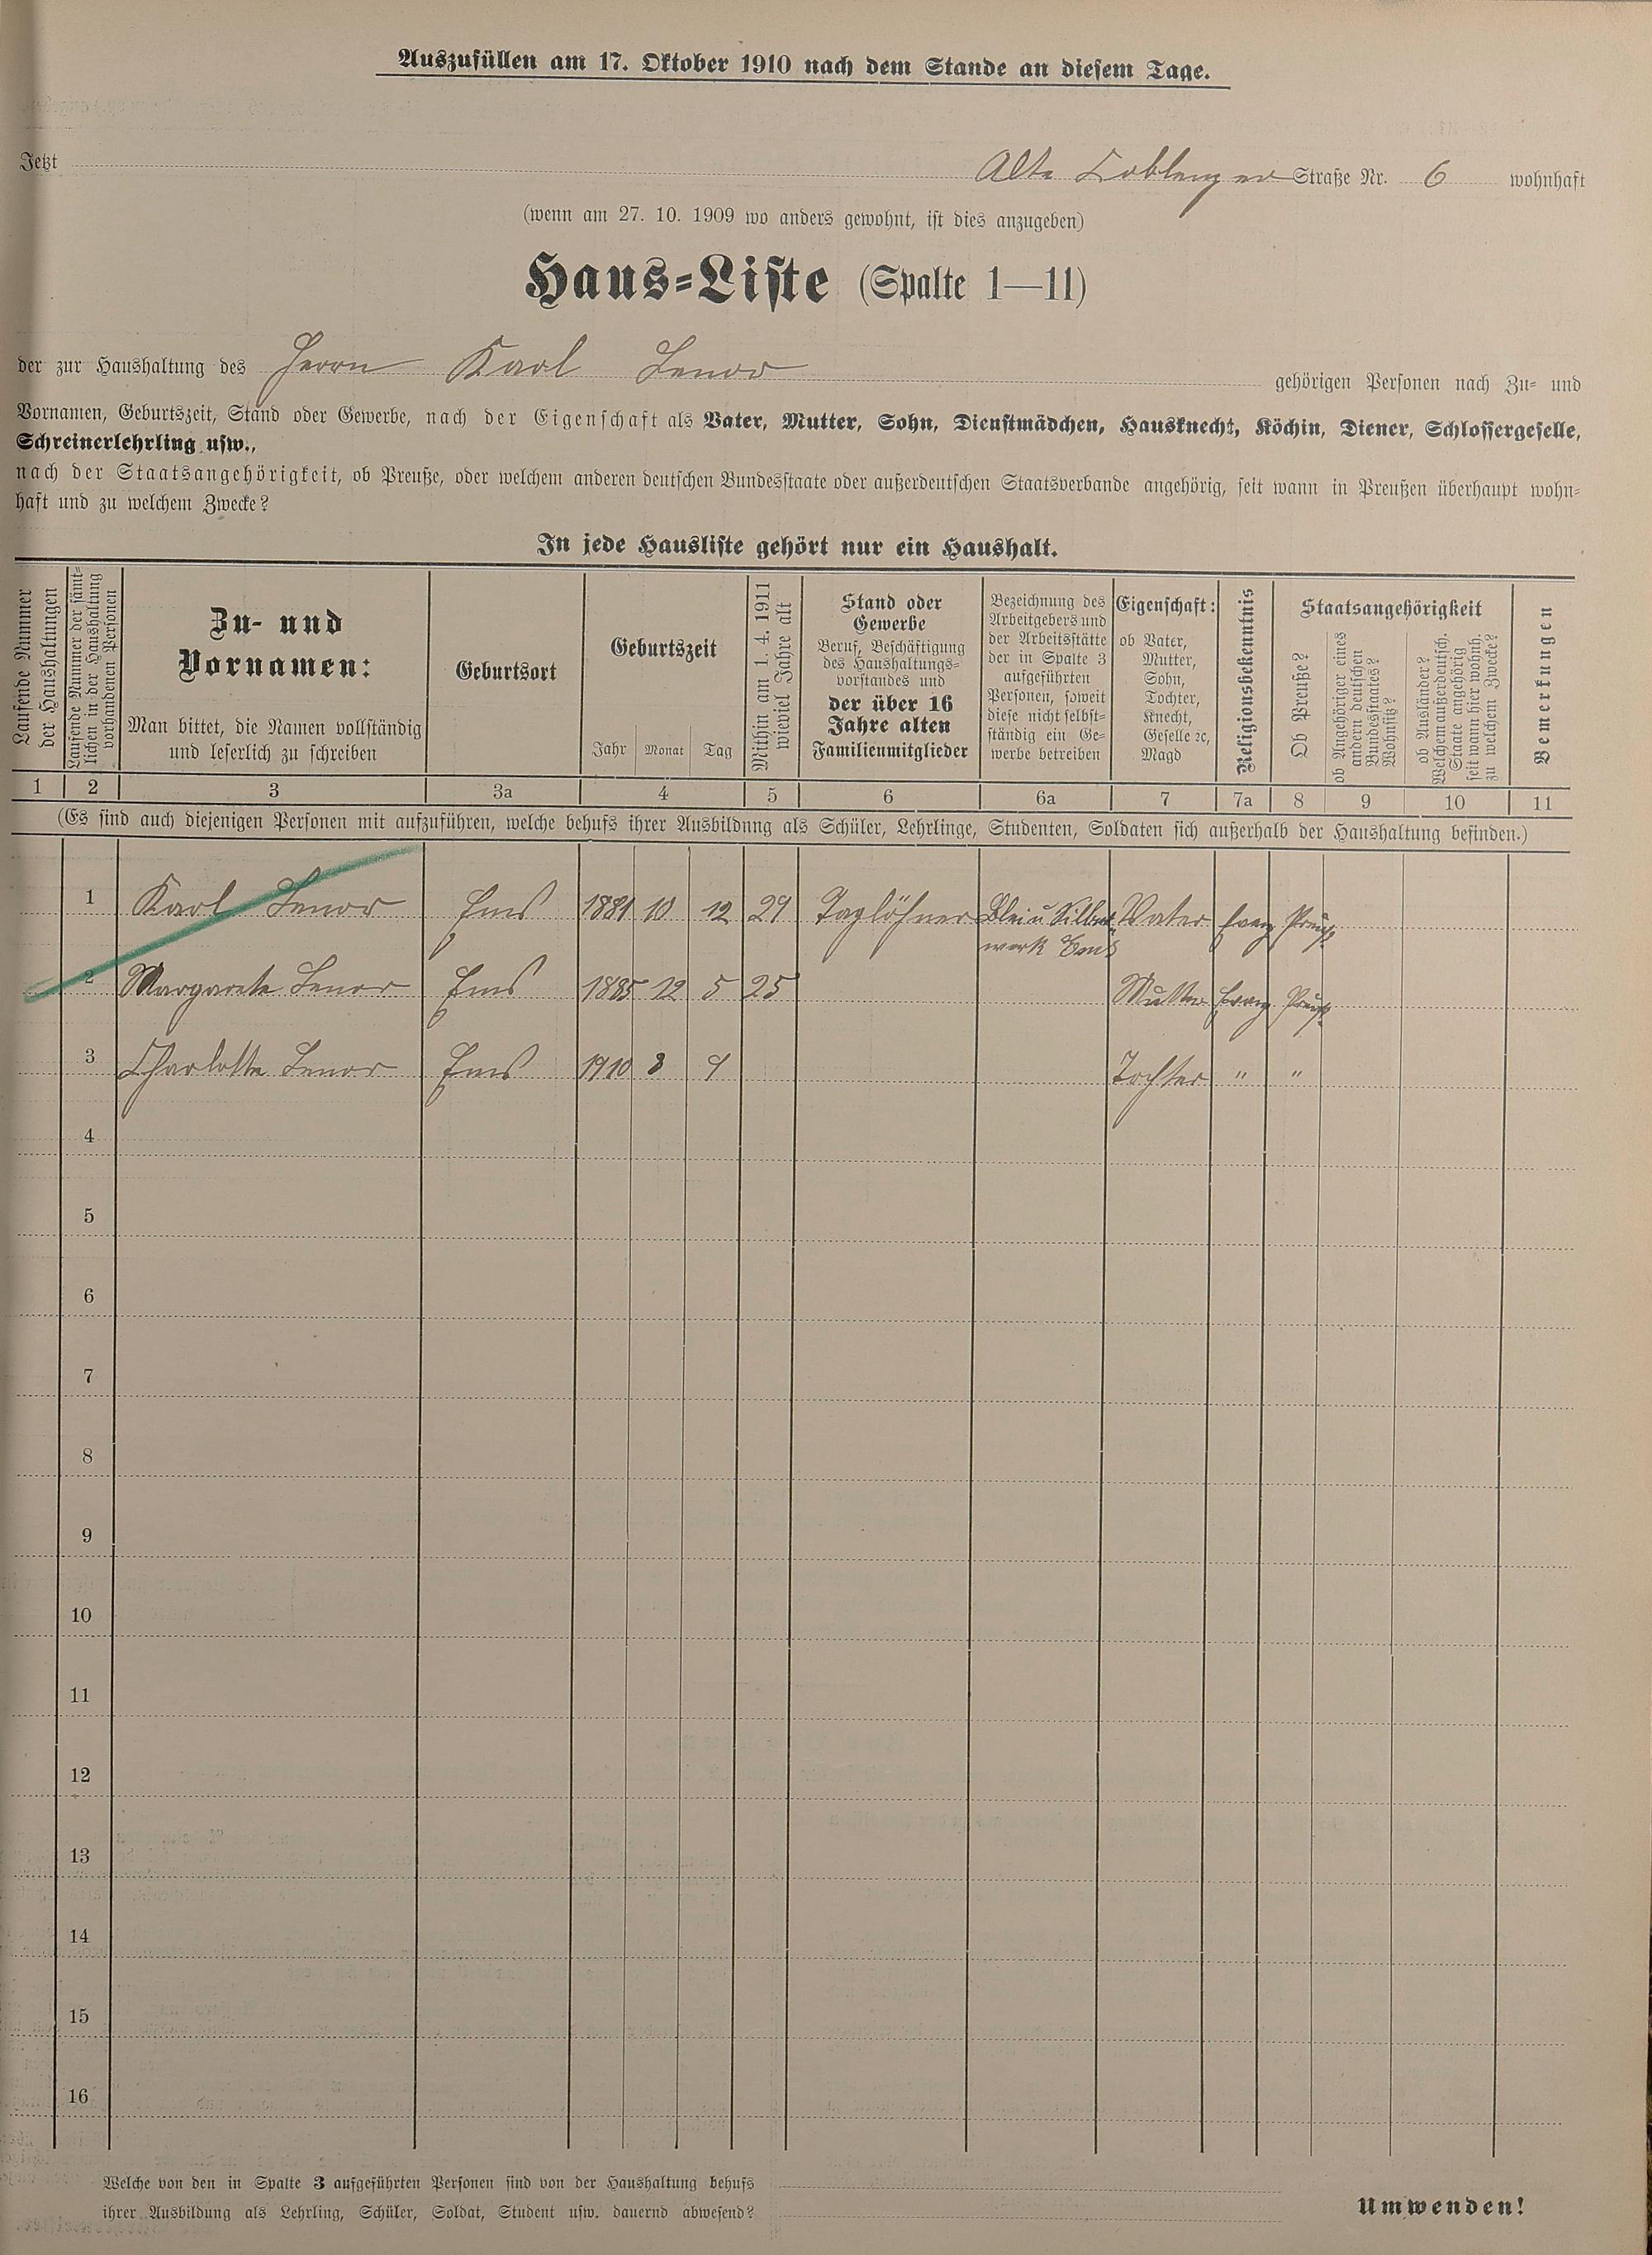 Auszufüllen am 17. Oktober 1910 nach dem Stande an diesem Tage.
Jetzt Alte Coblenzer Straße Nr. 6 wohnhaft
(wenn am 27. 10. 1909 wo anders gewohnt, ist dies anzugeben)
Haus-Liste (Spalte 1—11)
der zur Haushaltung des Herrn Karl Lenor gehörigen Personen nach Zu- und
Vornamen, Geburtszeit, Stand oder Gewerbe, nach der Eigenschaft als Vater, Mutter, Sohn, Dienstmädchen, Hausknecht, Köchin, Diener, Schlossergeselle,
Schreinerlehrling usw.,
nach der Staatsangehörigkeit, ob Preuße, oder welchem anderen deutschen Bundesstaate oder außerdeutschen Staatsverbande angehörig, seit wann in Preußen überhaupt wohn-
haft und zu welchem Zwecke?
In jede Hausliste gehört nur ein Haushalt.
Laufende Nummer
der Haushaltungen
Laufende Nummer der sämt-
lichen in der Haushaltung
vorhandenen Personen
Zu- und
Vornamen:
Man bittet, die Namen vollständig
und leserlich zu schreiben
Geburtsort
Geburtszeit
Jahr Monat Tag
Mithin am 1. 4. 1911
wieviel Jahre alt
Stand oder
Gewerbe
Beruf, Beschäftigung
des Haushaltungs-
vorstandes und
der über 16
Jahre alten
Familienmitglieder
Bezeichnung des
Arbeitgebers und
der Arbeitsstätte
der in Spalte 3
aufgeführten
Personen, soweit
diese nicht selbst-
ständig ein Ge-
werbe betreiben
Eigenschaft:
ob Vater,
Mutter,
Sohn,
Tochter,
Knecht,
Geselle ꝛc,
Magd
Religionsbekenntnis
Staatsangehörigkeit
Ob Preuße?
ob Angehöriger eines
andern deutschen
Bundesstaates?
Wohnsitz?
ob Ausländer?
Welchem außerdeutsch.
Staate angehörig
seit wann hier wohnh.
zu welchem Zwecke?
Bemerkungen
1 2 3 3a 4 5 6 6a 7 7a 8 9 10 11
(Es sind auch diejenigen Personen mit aufzuführen, welche behufs ihrer Ausbildung als Schüler, Lehrlinge, Studenten, Soldaten sich außerhalb der Haushaltung befinden.)
1 Karl Lenor Ems 1881 10 12 29 Taglöhner Blei u Silber- Vater Evang Preuß.
werk Ems
2 Margarete Lenor Ems 1885 12 5 25 Mutter Evang Preuß.
3 Charlotte Lenor Ems 1910 8 9 Tochter " "
4
5
6
7
8
9
10
11
12
13
14
15
16
Welche von den in Spalte 3 aufgeführten Personen sind von der Haushaltung behufs
ihrer Ausbildung als Lehrling, Schüler, Soldat, Student usw. dauernd abwesend?
Umwenden!